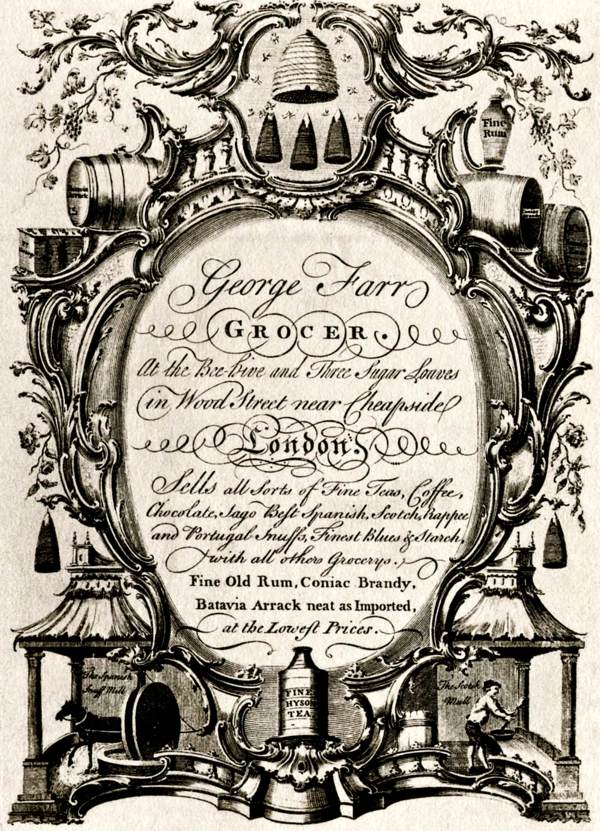 Fine
Rum
George Farr
GROCER.
At the Bee-hive and Three Sugar Loaves
in Wood Street near Cheapside
London.
Sells all Sorts of Fine Teas, Coffee,
Chocolate, Sago Best Spanish, Scotch, Rappee
and Portugal Snuffs, Finest Blues & Starch,
with all others Grocerys.
Fine Old Rum, Coniac Brandy,
Batavia Arrack neat as Imported,
at the Lowest Prices.
The Spanish
Snuff Mill
The Scotch
Mull
FINE
HYSON
TEA